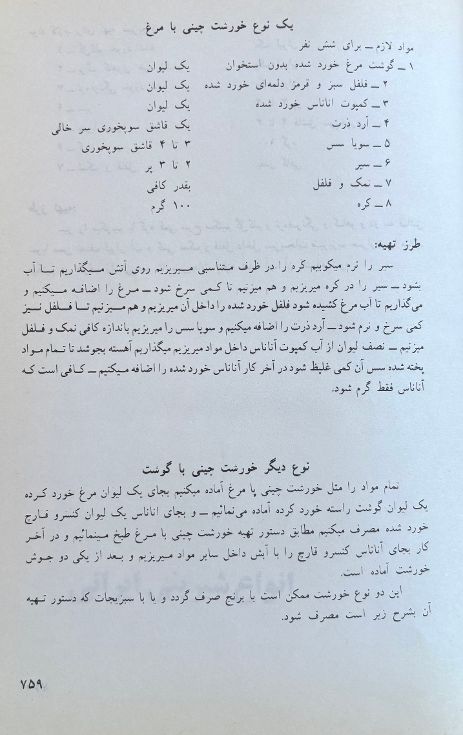 یک نوع خورشت چینی با مرغ
مواد لازم ــ برای شش نفر
۱ ــ گوشت مرغ خورد شده بدون استخوان یک لیوان
۲ ــ فلفل سبز و قرمز دلمه‌ای خورد شده یک لیوان
۳ ــ کمپوت اناناس خورد شده یک لیوان
۴ ــ آرد ذرت یک قاشق سوپخوری سر خالی
۵ ــ سویا سس ۳ تا ۴ قاشق سوپخوری
۶ ــ سیر ۲ تا ۳ پر
۷ ــ نمک و فلفل بقدر کافی
۸ ــ کره ۱۰۰ گرم
طرز تهیه:
سیر را نرم میکوبیم کره را در ظرف متناسبی میریزیم روی آتش میگذاریم تا آب
بشود ــ سیر را در کره میریزیم و هم میزنیم تا کمی سرخ شود ــ مرغ را اضافه میکنیم و
می‌گذاریم تا آب مرغ کشیده شود فلفل خورد شده را داخل آن میریزیم و هم میزنیم تا فلفل نیز
کمی سرخ و نرم شود ــ آرد ذرت را اضافه میکنیم و سویا سس را میریزیم باندازه کافی نمک و فلفل
میزنیم ــ نصف لیوان از آب کمپوت آناناس داخل مواد میریزیم میگذاریم آهسته بجوشد تا تمام مواد
پخته شده سس آن کمی غلیظ شود در آخر کار آناناس خورد شده را اضافه میکنیم ــ کافی است که
آناناس فقط گرم شود.
نوع دیگر خورشت چینی با گوشت
تمام مواد را مثل خورشت چینی با مرغ آماده میکنیم بجای یک لیوان مرغ خورد کرده
یک لیوان گوشت راسته خورد کرده آماده می‌نمائیم ــ و بجای اناناس یک لیوان کنسرو قارچ
خورد شده مصرف میکنیم مطابق دستور تهیه خورشت چینی با مرغ طبخ مینمائیم و در آخر
کار بجای آناناس کنسرو قارچ را با آبش داخل سایر مواد میریزیم و بعد از یکی دو جوش
خورشت آماده است.
این دو نوع خورشت ممکن است با برنج صرف گردد و یا با سبزیجات که دستور تهیه
آن بشرح زیر است مصرف شود.
۷۵۹